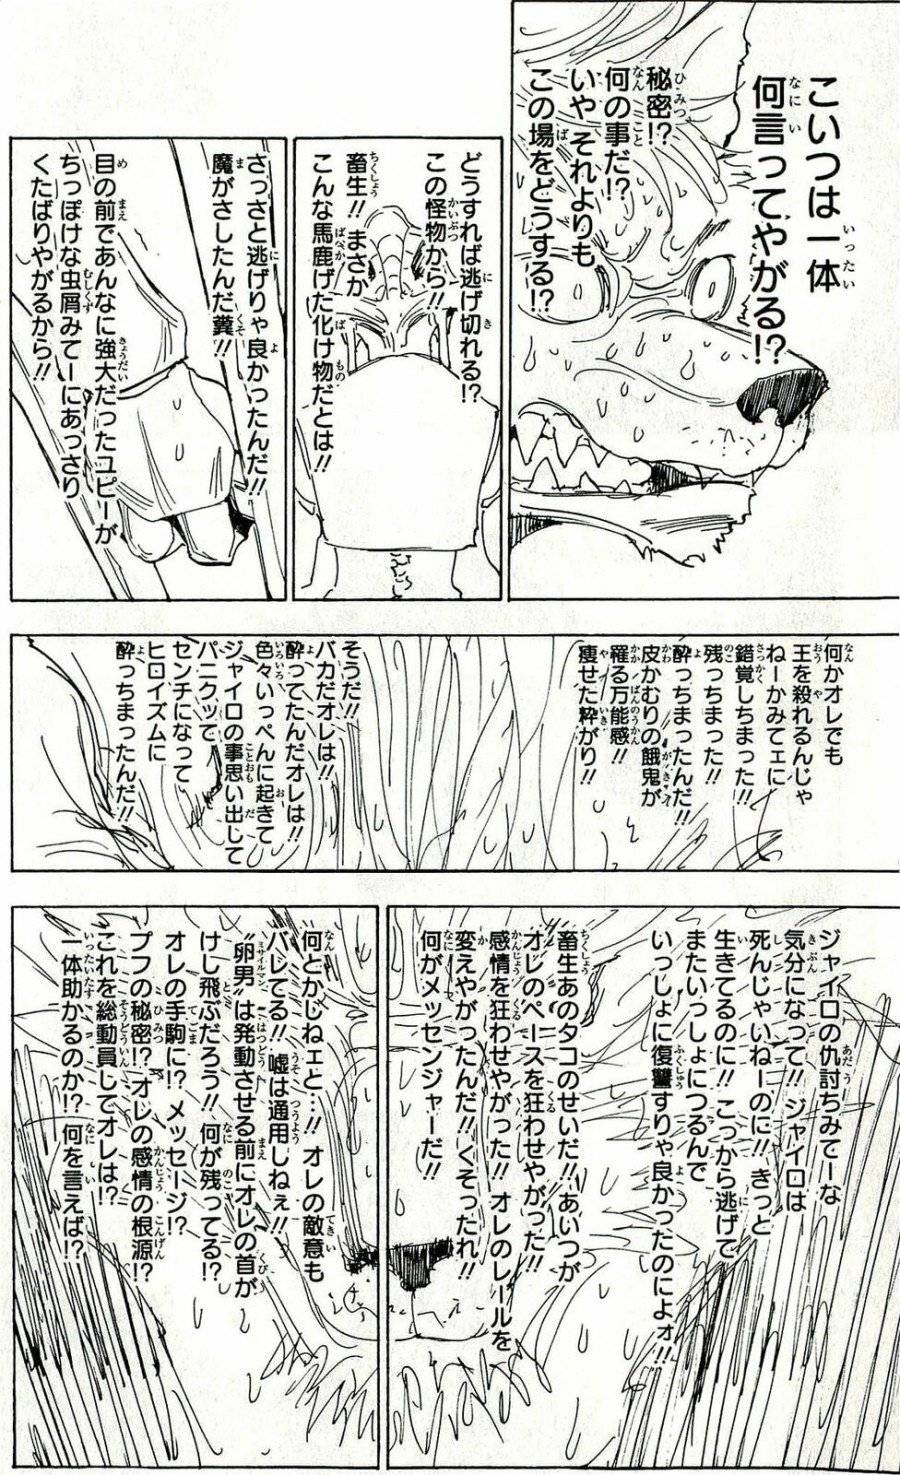 こいつは一体
何言ってやがる!?
秘密!?
何の事だ!?
いや それよりも
この場をどうする!?
どうすれば逃げ切れる!?
この怪物から!!
畜生!! まさか
こんな馬鹿げた化け物だとは!!
さっさと逃げりゃ良かったんだ!!
魔がさしたんだ糞!!
目の前であんなに強大だったユピーが
ちっぽけな虫屑みてーにあっさり
くたばりやがるから!!
何かオレでも
王を殺れるんじゃ
ねーかみてェに
錯覚しちまった!!
残っちまった!!
酔っちまったんだ!!
皮かむりの餓鬼が
罹る万能感!!
痩せた粋がり!!
そうだ!!
バカだオレは!!
酔ってたんだオレは!!
色々いっぺんに起きて
ジャイロの事思い出して
パニクッて
センチになって
ヒロイズムに
酔っちまったんだ!!
ジャイロの仇討ちみてーな
気分になって!! ジャイロは
死んじゃいねーのに!! きっと
生きてるのに!! こっから逃げて
またいっしょにつるんで
いっしょに復讐すりゃ良かったのによォ!!
畜生あのタコのせいだ!! あいつが
オレのペースを狂わせやがった!!
感情を狂わせやがった!! オレのレールを
変えやがったんだ!! くそったれ!!
何がメッセンジャーだ!!
何とかしねェと…!! オレの敵意も
バレてる!! 嘘は通用しねェ!!
“卵男”は発動させる前にオレの首が
けし飛ぶだろう!! 何が残ってる!?
オレの手駒に!? メッセージ!?
プフの秘密!? オレの感情の根源!?
これを総動員してオレは!?
一体助かるのか!? 何を言えば!?